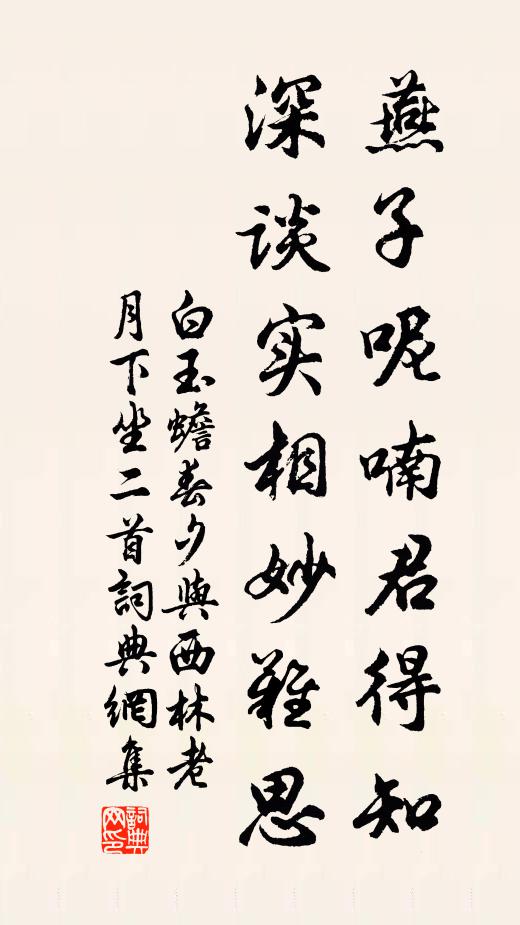 燕子呢喃君得知
深谈实相妙难思
白玉蟾春夕與西林老
月下坐二首詞典網集
詞典網印